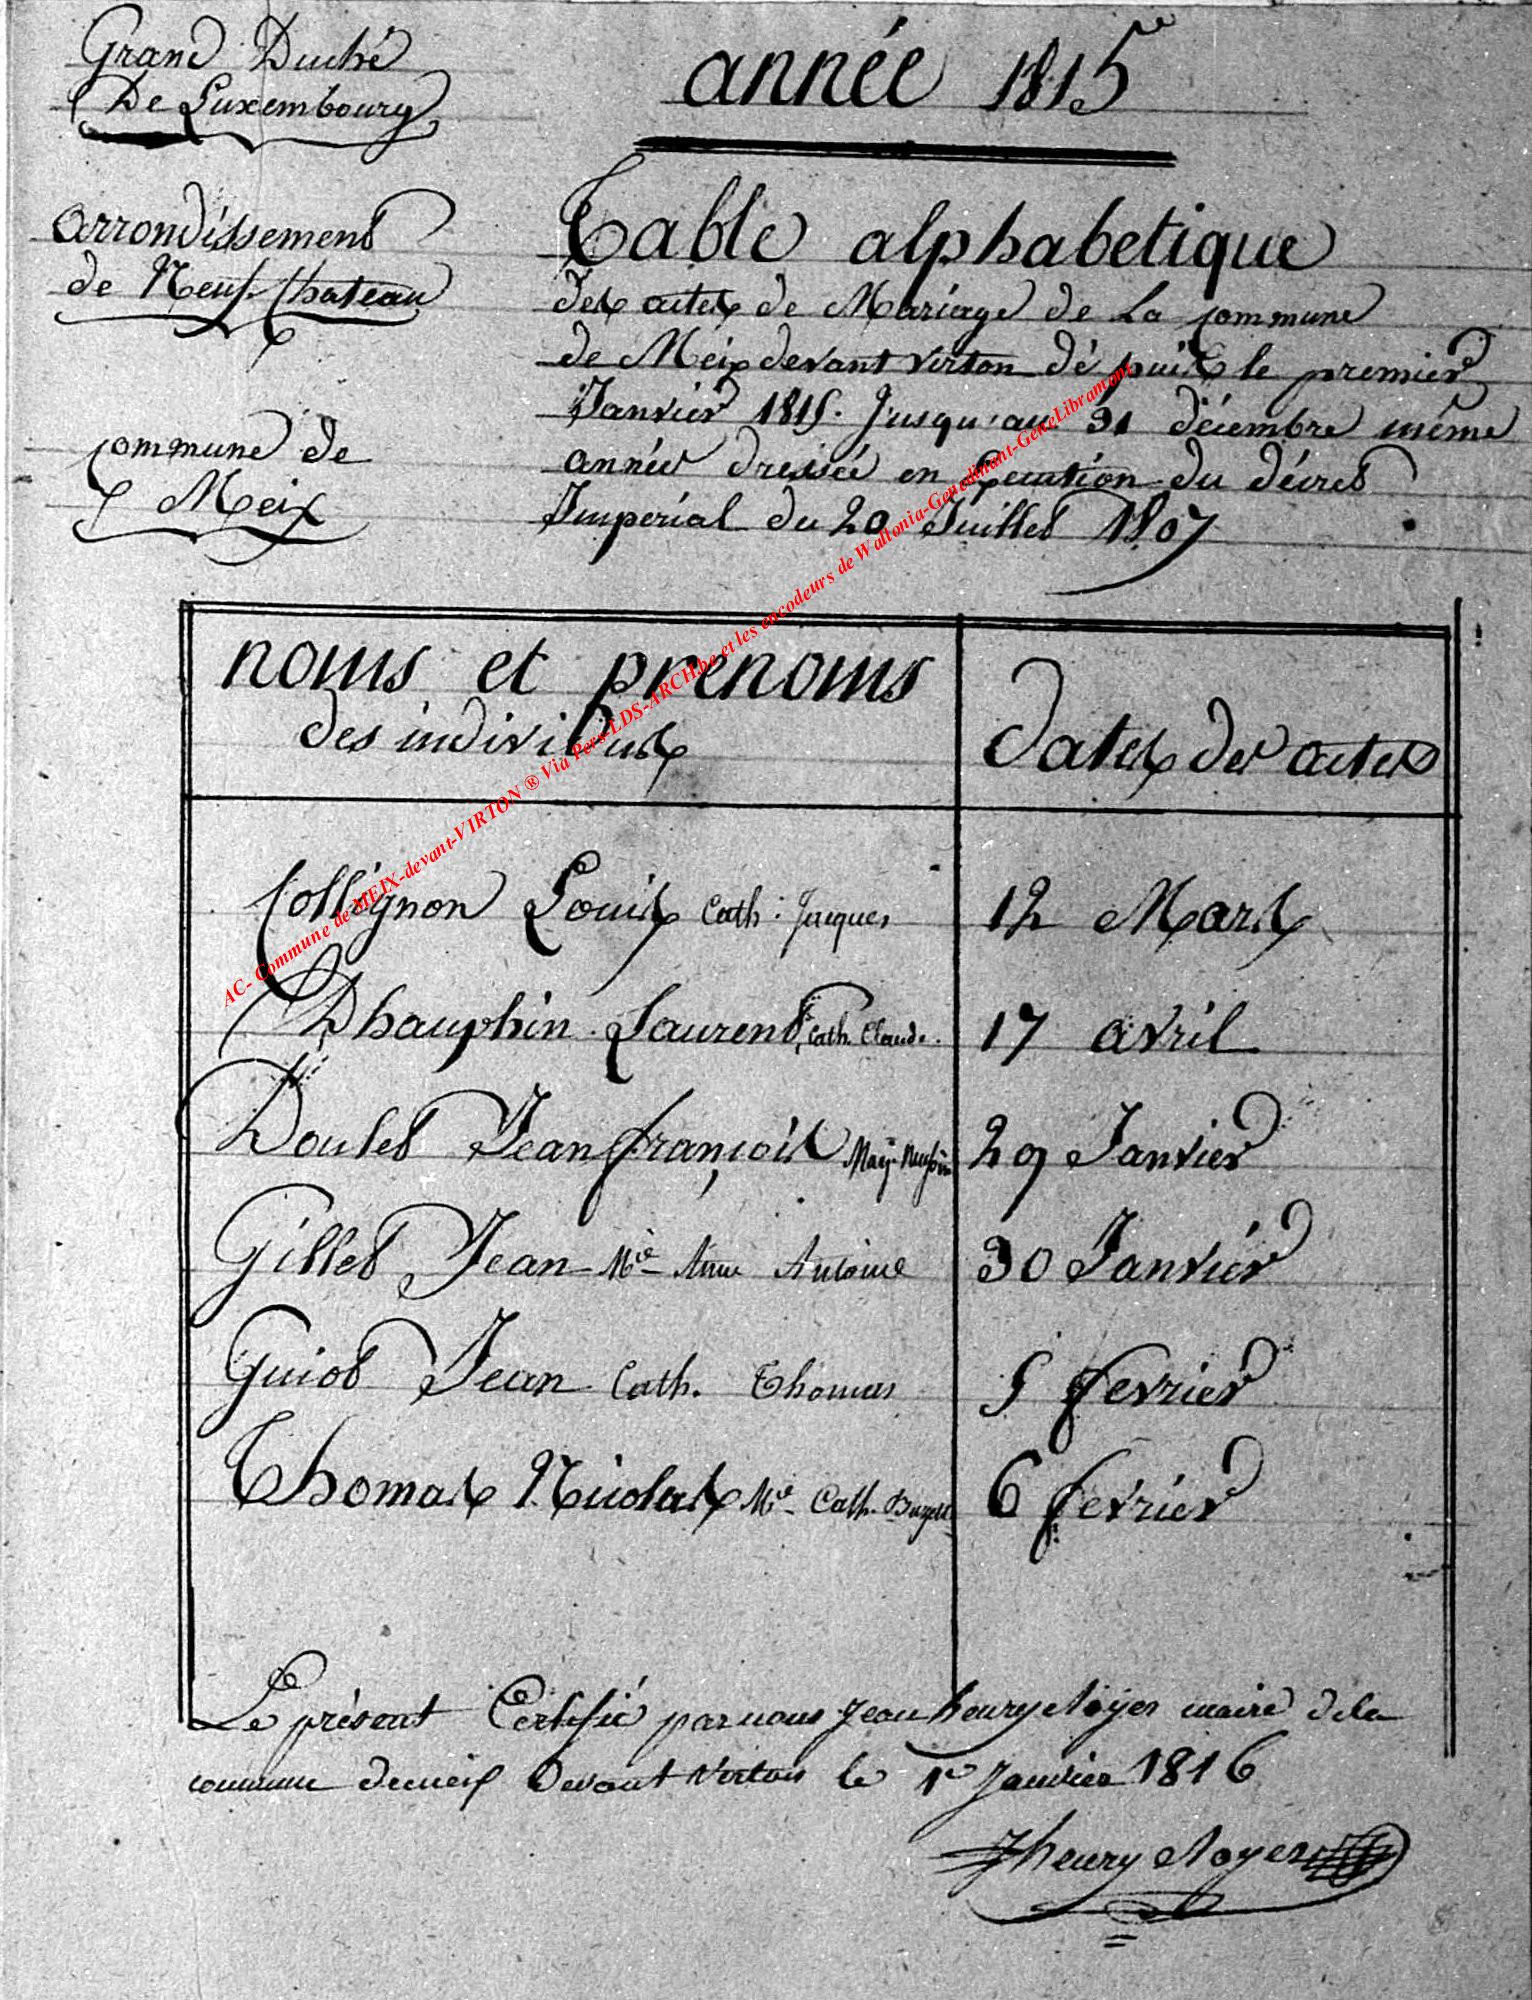 Grand Duché
De Luxembourg
année 1815
arrondissement
de Neuf-chateau
commune de
Meix
Table alphabetique
des actes de Mariage de La commune
de Meix devant virton dépuis le premier
Janvier 1815. Jusqu'au 31 décembre même
année dressée en du décret
Imperial du 20 Juillet 1807
noms et prenoms
des individus
dates des actes
Collignon Louis Cath: Jacques 12 Mars
Dhauphin Laurent, Cath. Claude. 17 avril
Doulet Jean françois 29 Janvier
Gillet Jean Mie Anne Antoine 30 Janvier
Guiot Jean Cath. Thomas 5 fevrier
Thomas Nicolas Mie Cath. 6 février
Le présent Certifié par nous Jean henry Noyer maire dela
commune demeix Devant Virton le 1er Janvier 1816
Jhenry Noyer
AC- Commune de MEIX-devant-VIRTON ® Via Pers-LDS-ARCH.be et les encodeurs de Wallonia-Genedinant-GeneLibramont